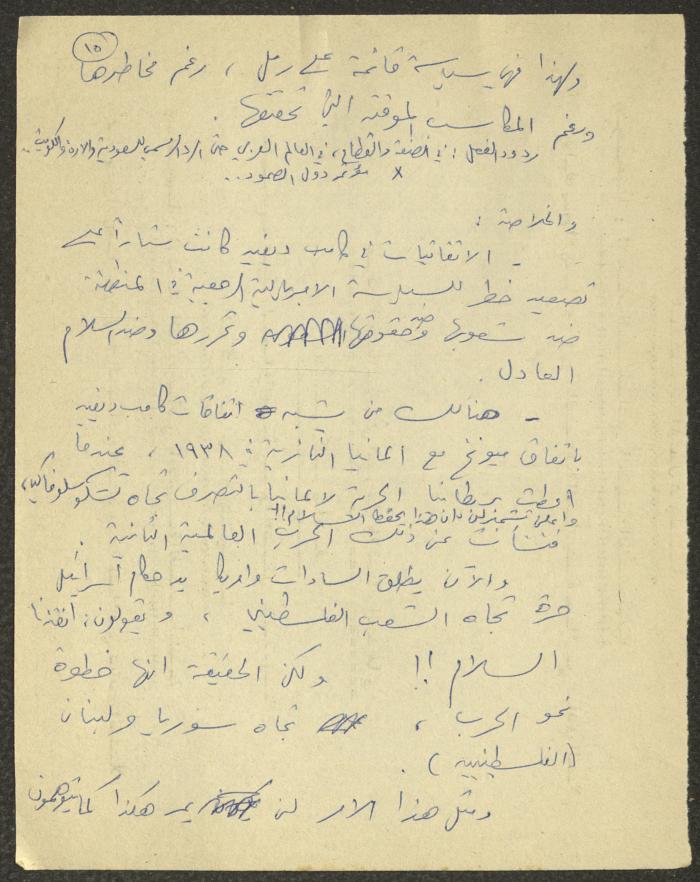 ١٥
ولهذا فهي سياسة قائمة على رمل ، رغم مخاطرها
ورغم المكاسب المؤقتة التي تحققها .
ردود الفعل : في الضفة والقطاع ، في العالم العربي حتى الرد الرسمي للسعودية والاردن والكويت ..
x مؤتمر دول الصمود ..
والخلاصة :
- الاتفاقيات في كامب ديفيد كانت ستاراً على
تصعيد خطر للسياسة الامبريالية الرجعية في المنطقة
ضد شعوبها وضد حقوقها وتحررها وضد السلام
العادل .
- هنالك من شبه اتفاقات كامب ديفيد
باتفاق ميونخ مع المانيا النازية في ١٩٣٨ ، عندما
اعطت بريطانيا الحرية لالمانيا بالتصرف تجاه تشكوسلوفاكيا ،
واعلن تشمبرلين بان هذا يحفظ السلام !!
فنشأت عن ذلك الحرب العالمية الثانية .
والآن يطلق السادات وامريكا يد حكام اسرائيل
حرة تجاه الشعب الفلسطيني ، ويقولون : انقذنا
السلام !! ولكن الحقيقة انها خطوة
نحو الحرب ، تجاه سوريا ولبنان
(الفلسطينيية) .
ومثل هذا الامر لن يمر هكذا كما يتوهمون